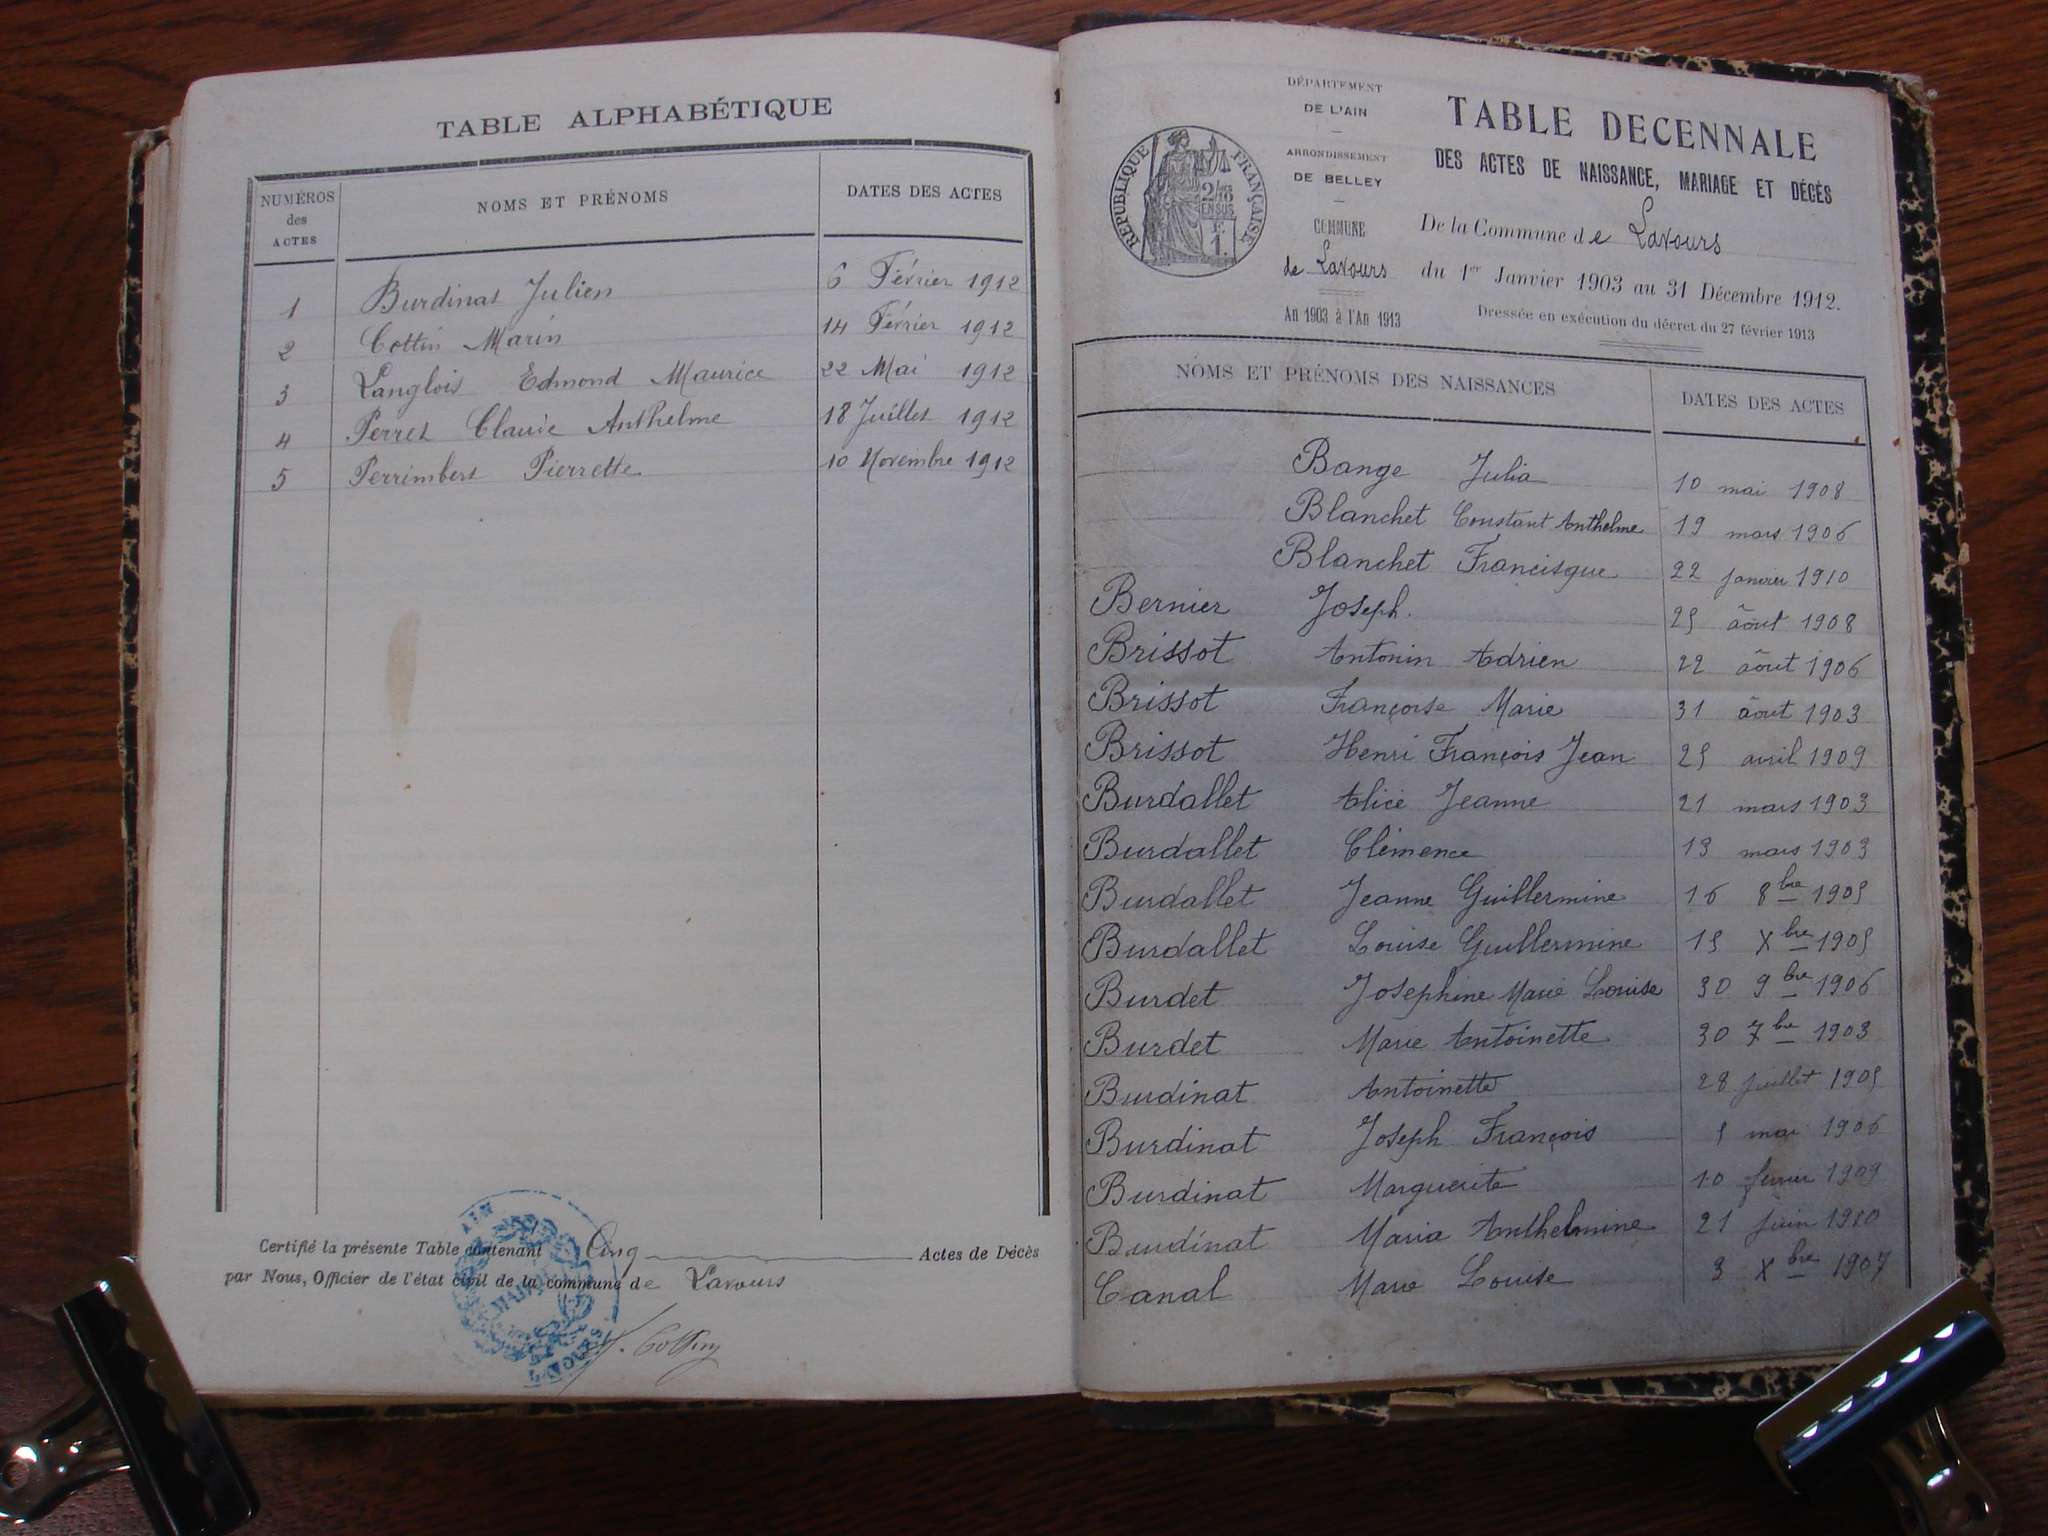 TABLE ALPHABÉTIQUE
NUMÉROS des ACTES
NOMS ET PRÉNOMS
DATES DES ACTES
1 Burdinat Julien 6 Février 1912
2 Cottin Marin 14 Février 1912
3 Langlois Edmond Maurice 22 Mai 1912
4 Perret Claude Anthelme 18 Juillet 1912
5 Perrimbert Pierrette 10 Novembre 1912
Certifié la présente Table contenant Cinq Actes de Décès
par Nous, Officier de l'état civil de la commune de Lavours
Cottin
DÉPARTEMENT
DE L'AIN
ARRONDISSEMENT
DE BELLEY
COMMUNE
de Lavours
An 1903 à l'An 1913
RÉPUBLIQUE FRANÇAISE
2/10
EN SUS
F.
1.
TABLE DECENNALE
DES ACTES DE NAISSANCE, MARIAGE ET DÉCÈS
De la Commune de Lavours
du 1er Janvier 1903 au 31 Décembre 1912.
Dressée en exécution du décret du 27 février 1913
NOMS ET PRÉNOMS DES NAISSANCES
DATES DES ACTES
Bange Julia 10 mai 1908
Blanchet Constant Anthelme 19 mars 1906
Blanchet Francisque 22 janvier 1910
Bernier Joseph. 25 âout 1908
Brissot Antonin Adrien 22 âout 1906
Brissot Françoise Marie 31 âout 1903
Brissot Henri François Jean 25 avril 1909
Burdallet Alice Jeanne 21 mars 1903
Burdallet Clémence 13 mars 1903
Burdallet Jeanne Guillermine 16 8bre 1905
Burdallet Louise Guillermine 15 Xbre 1905
Burdet Josephine Marie Louise 30 9bre 1906
Burdet Marie Antoinette 30 7bre 1903
Burdinat Antoinette 28 juillet 1905
Burdinat Joseph François 5 mai 1906
Burdinat Marguerite 10 fevrier 1909
Burdinat Maria Anthelmine 21 juin 1910
Canal Marie Louise 3 Xbre 1907